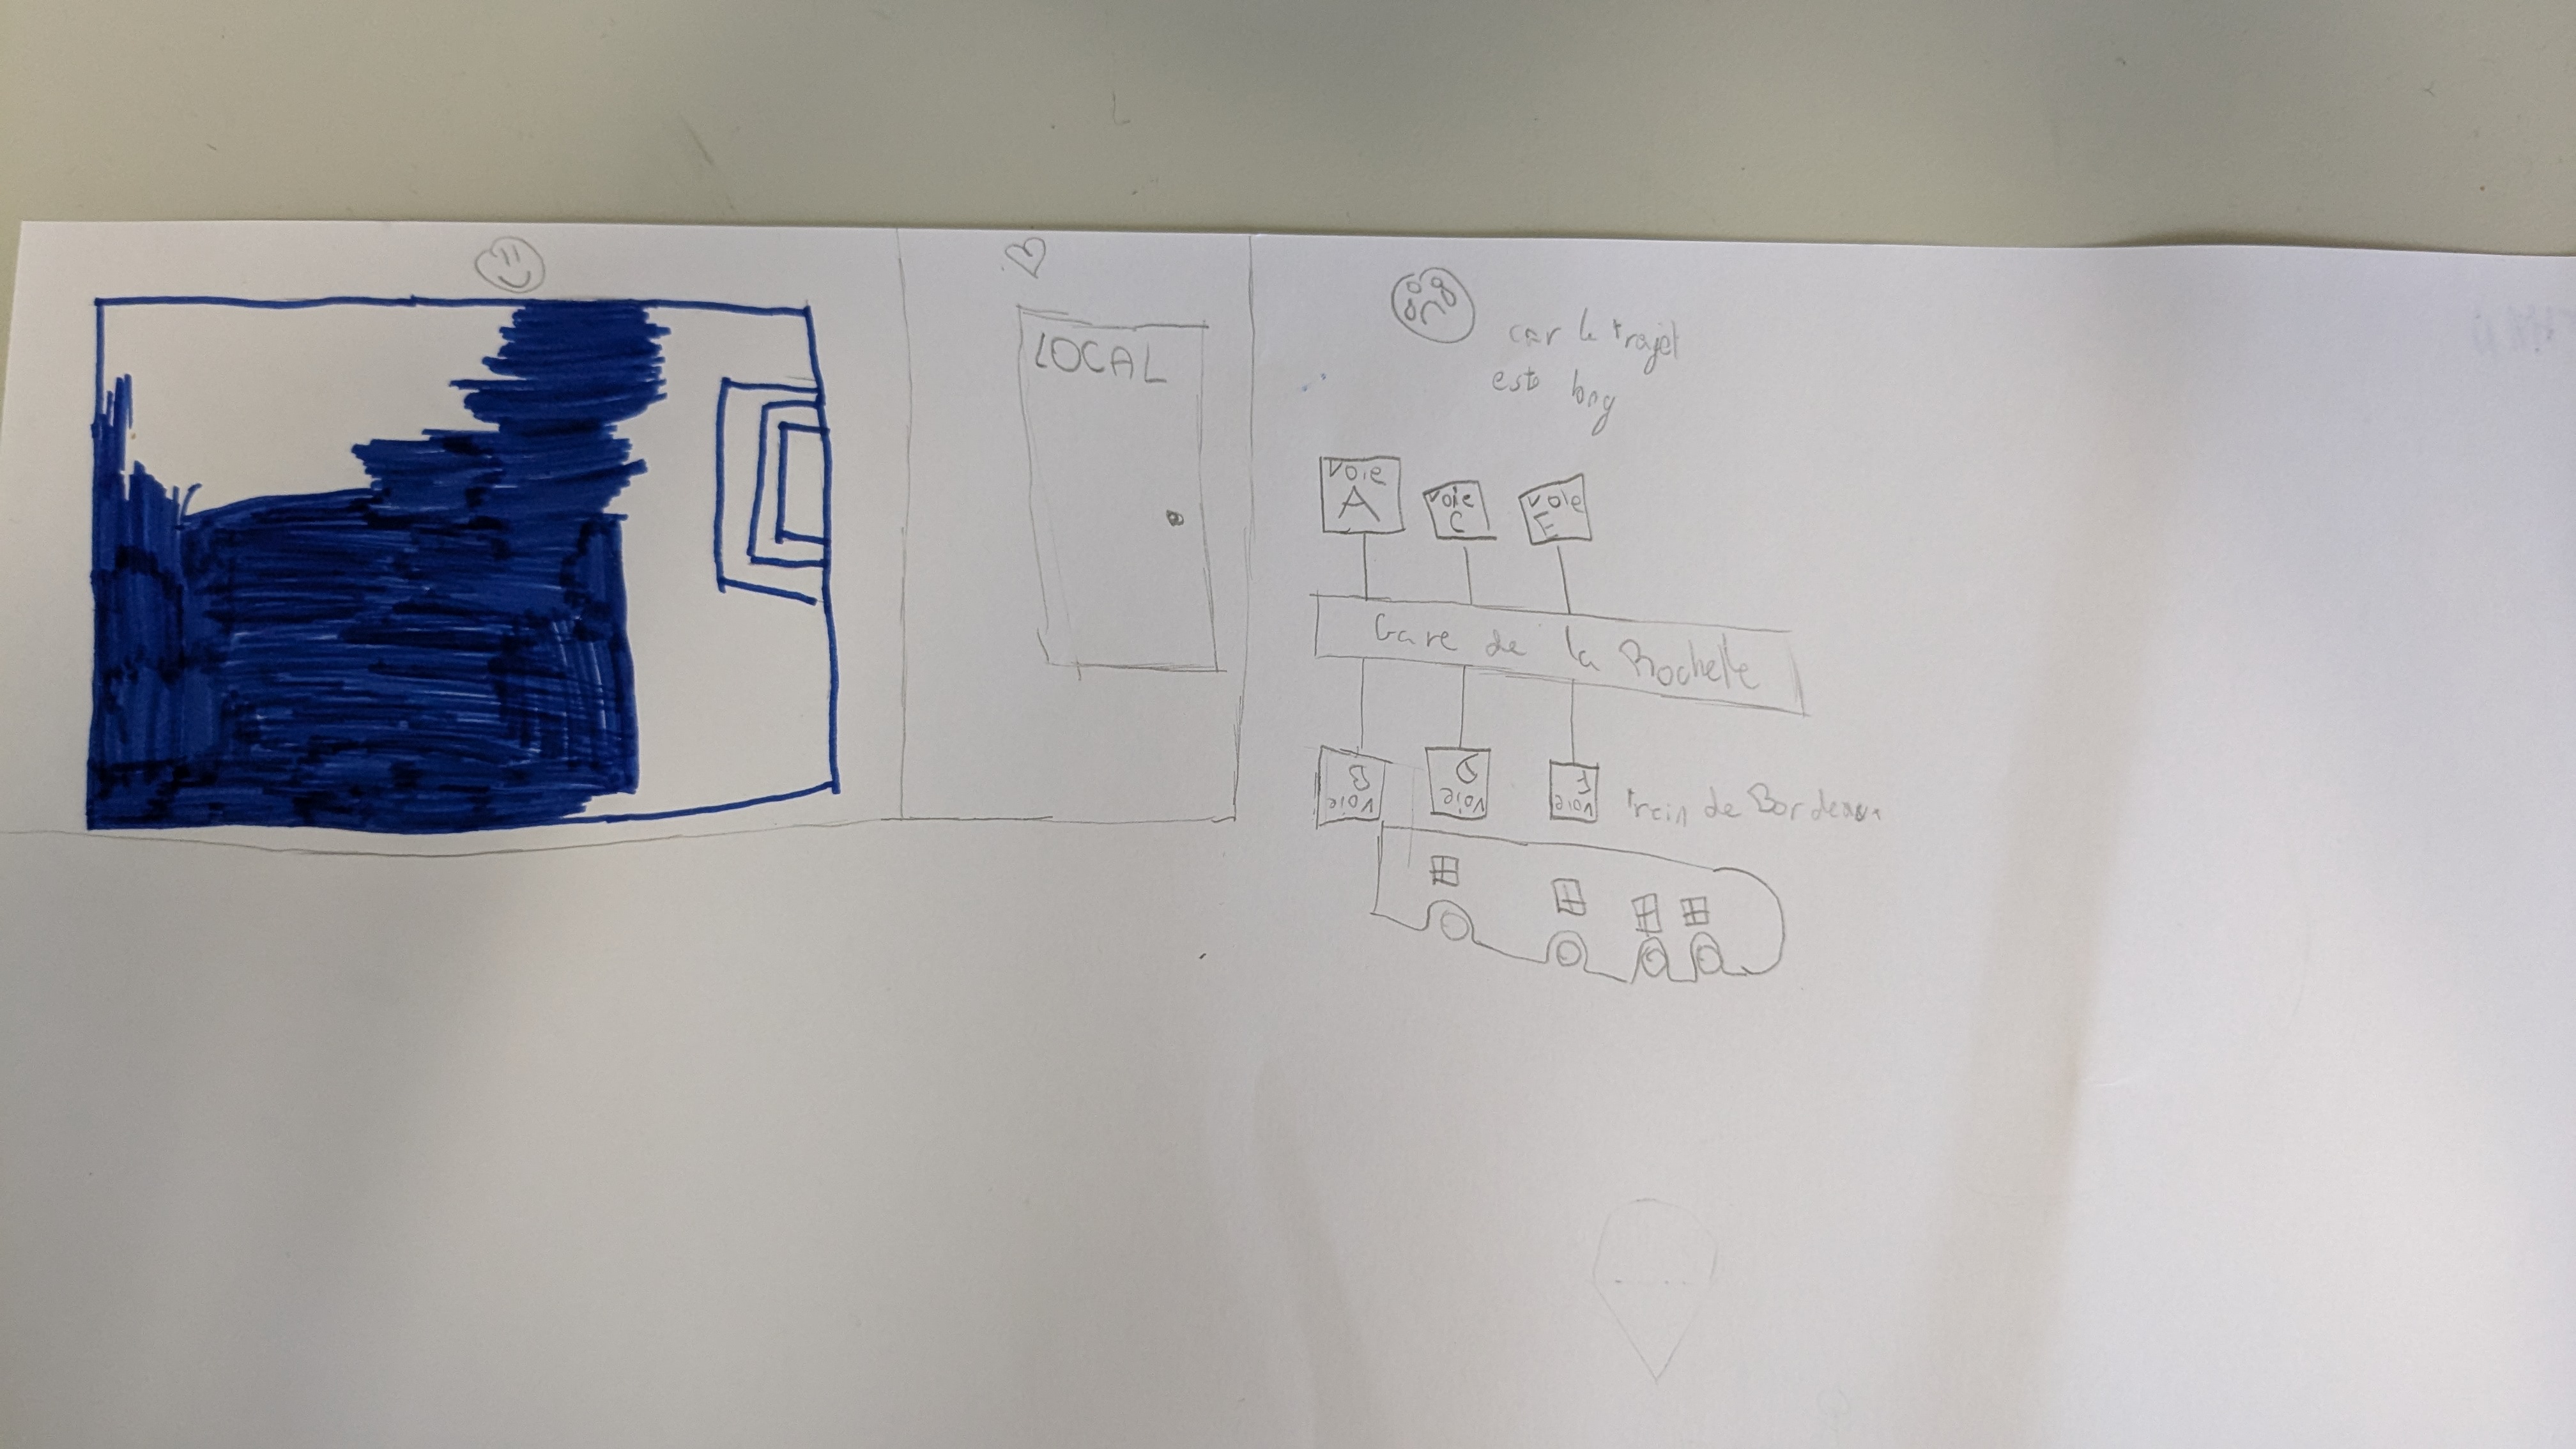 LOCAL
car le trajet
est long
voie
A
voie
C
voie
E
Gare de la Rochelle
B
voie
D
voie
F
voie
train de Bordeaux